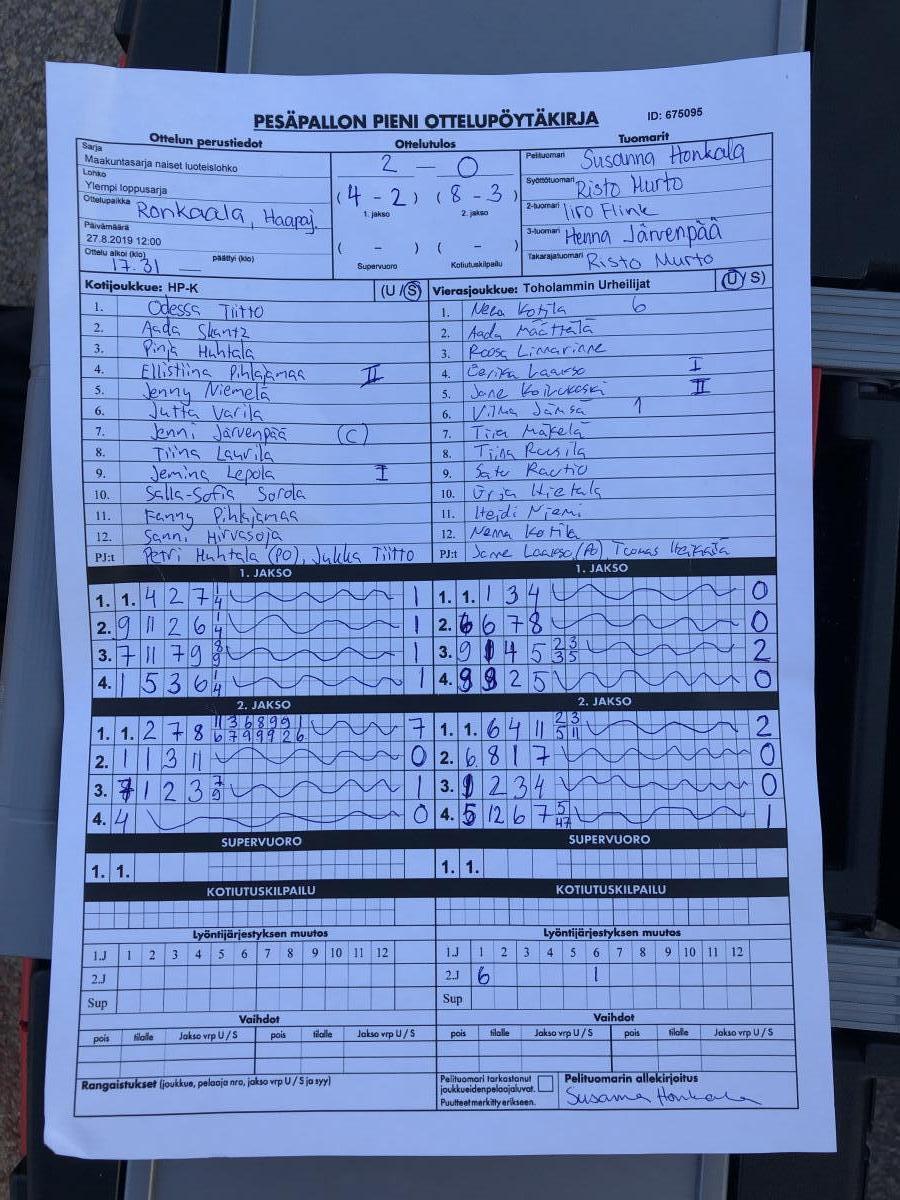 PESÄPALLON PIENI OTTELUPÖYTÄKIRJA
ID: 675095
Ottelun perustiedot
Ottelutulos
Tuomarit
Sarja
Maakuntasarja naiset luoteislohko
Lohko
Ylempi loppusarja
Ottelupaikka Ronkaala, Haapaj.
Päivämäärä
27.8.2019 12:00
Ottelu alkoi (klo) 17.31 päättyi (klo)
2 – 0
(4 - 2) (8 - 3)
1. jakso 2. jakso
( - ) ( - )
Supervuoro Kotiutuskilpailu
Pelituomari Susanna Honkala
Syöttötuomari Risto Murto
2-tuomari Iiro Flink
3-tuomari Henna Järvenpää
Takarajatuomari Risto Murto
Kotijoukkue: HP-K (U / S)
1. Odessa Tiitto
2. Aada Skantz
3. Pinja Huhtala
4. Ellistiina Pihlajamaa II
5. Jenny Niemelä
6. Jutta Varila
7. Jenni Järvenpää (C)
8. Tiina Laurila
9. Jemina Lepola I
10. Salla-Sofia Sorola
11. Fanny Pihlajamaa
12. Sanni Hirvasoja
PJ:t Petri Huhtala (PO), Jukka Tiitto
Vierasjoukkue: Toholammin Urheilijat (U / S)
1. Neea Kotila 6
2. Aada Määttälä
3. Roosa Linnarinne
4. Eerika Laakso I
5. Jane Koivukoski II
6. Vilma Jämsä 1
7. Tiia Mäkelä
8. Tiina Ruusila
9. Satu Rautio
10. Orja Hietala
11. Heidi Niemi
12. Nenna Kotila
PJ:t Janne Laakso (PO) Tuomas
1. JAKSO
1. 1. 4 2 7 1/4 1
2. 9 11 2 6 1/4 1
3. 7 11 7 9 8/9 1
4. 1 5 3 6 1/4 1
1. JAKSO
1. 1. 1 3 4 0
2. 6 6 7 8 0
3. 9 1 4 5 2/3 3/5 2
4. 9 9 2 5 0
2. JAKSO
1. 1. 2 7 8 11/6 3/7 6/9 8/9 9/9 9/2 1/6 7
2. 1 1 3 11 0
3. 1 2 3 7/9 1
4. 4 0
2. JAKSO
1. 1. 6 4 11 2/5 3/11 2
2. 6 8 1 7 0
3. 1 2 3 4 0
4. 5 12 6 7 5/47 1
SUPERVUORO
1. 1.
SUPERVUORO
1. 1.
KOTIUTUSKILPAILU
KOTIUTUSKILPAILU
Lyöntijärjestyksen muutos
1.J 1 2 3 4 5 6 7 8 9 10 11 12
2.J
Sup
Lyöntijärjestyksen muutos
1.J 1 2 3 4 5 6 7 8 9 10 11 12
2.J 6 1
Sup
Vaihdot
pois tilalle Jakso vrp U / S pois tilalle Jakso vrp U / S
Vaihdot
pois tilalle Jakso vrp U / S pois tilalle Jakso vrp U / S
Rangaistukset (joukkue, pelaaja nro, jakso vrp U / S ja syy)
Pelituomari tarkastanut
joukkueidenpelaajaluvat.
Puutteet merkitty erikseen.
Pelituomarin allekirjoitus
Susanna Honkala